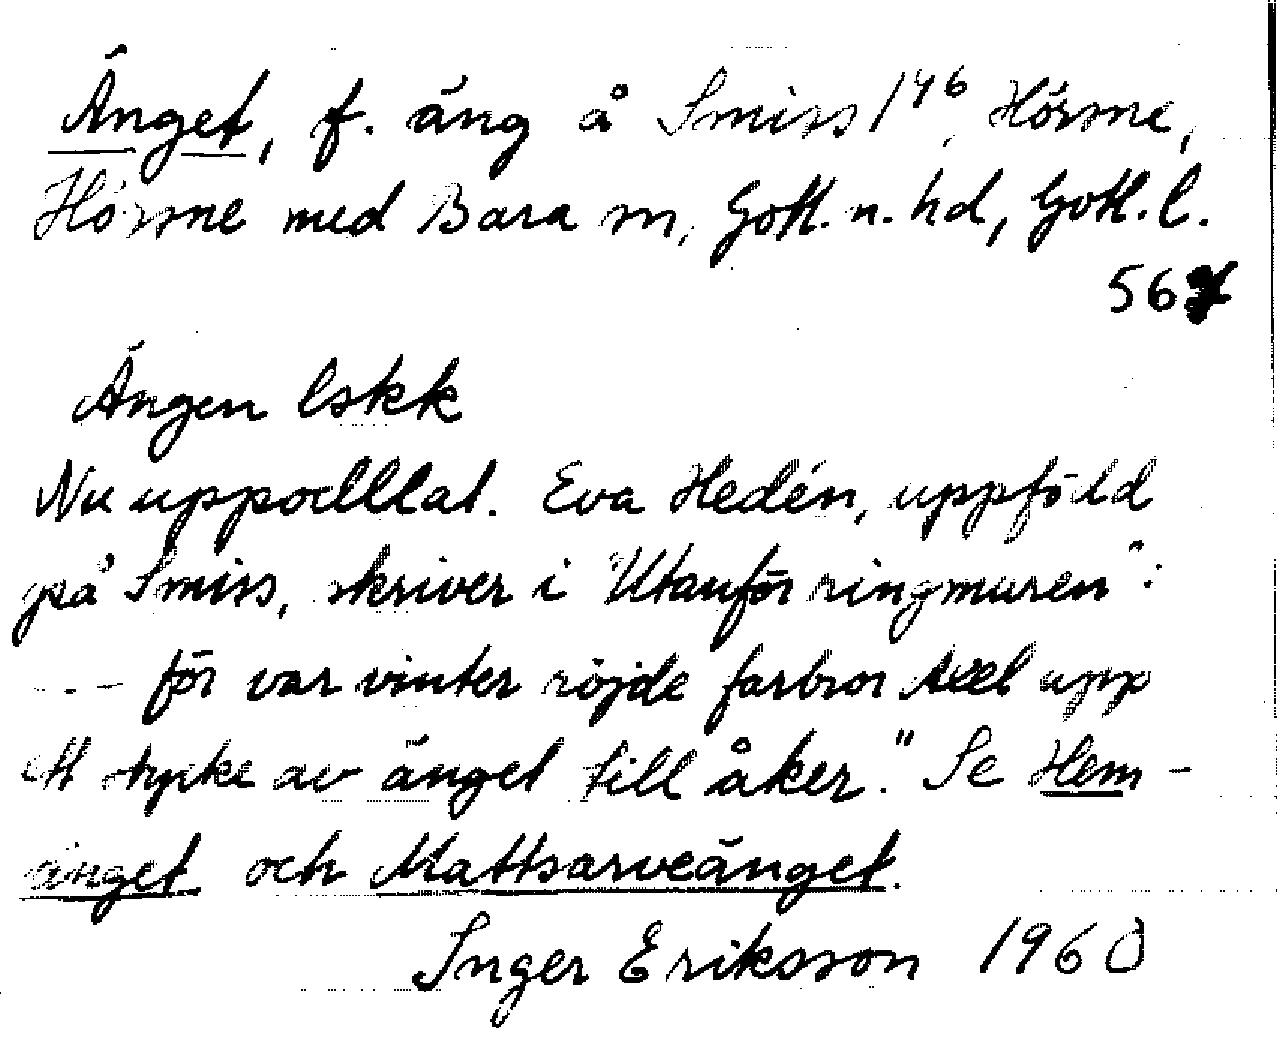 Änget, f. äng å Smiss 1⁴⁶, Hörsne,
Hörsne med Bara sn, Gotl. n. hd, Gotl. l.
567
Ängen lskk
Nu uppodllat. Eva Hedén, uppföld
på Smiss, skriver i "Utanför ringmuren":
--- för var vinter röjde farbror Axel upp
ett stycke av änget till åker." Se Hem-
änget och Mattsarveänget.
Inger Eriksson 1960